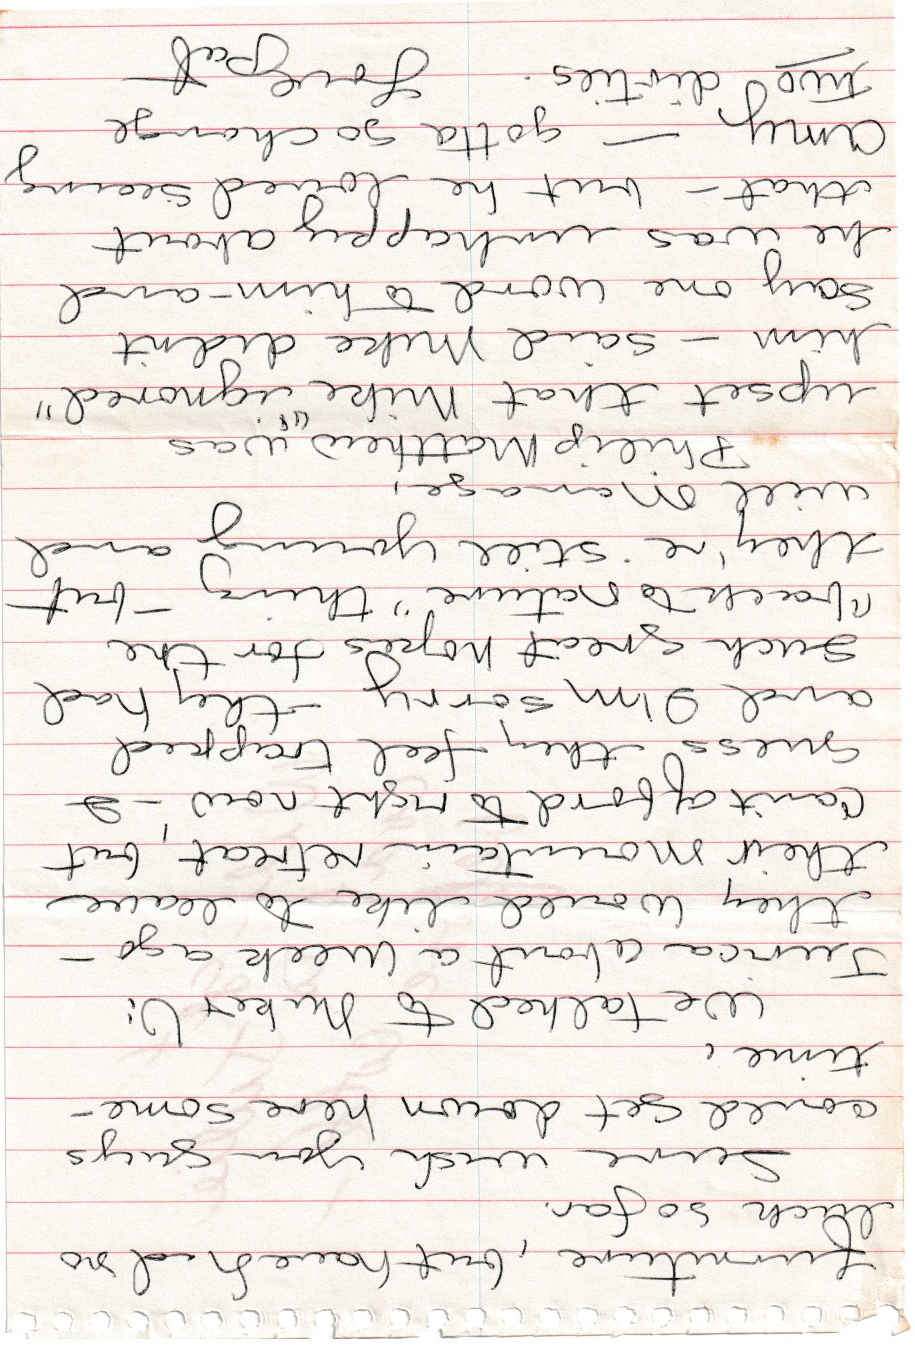 furniture, but have had no
luck so far.
Sure wish you guys
could get down here some-
time.
We talked to Mike & Vi
Junca about a week ago -
they would like to leave
their mountain retreat, but
can't afford to right now - I
guess they feel trapped
and I'm sorry - they had
such great hopes for the
"back to nature" thing - but
they're still young and
will manage.
Philip Matthew was
upset that Mike "ignored"
him - said Mike didn't
say one word to him - and
he was unhappy about
that - but he loved seeing
Amy - gotta go change
two dirties.
Love Pat